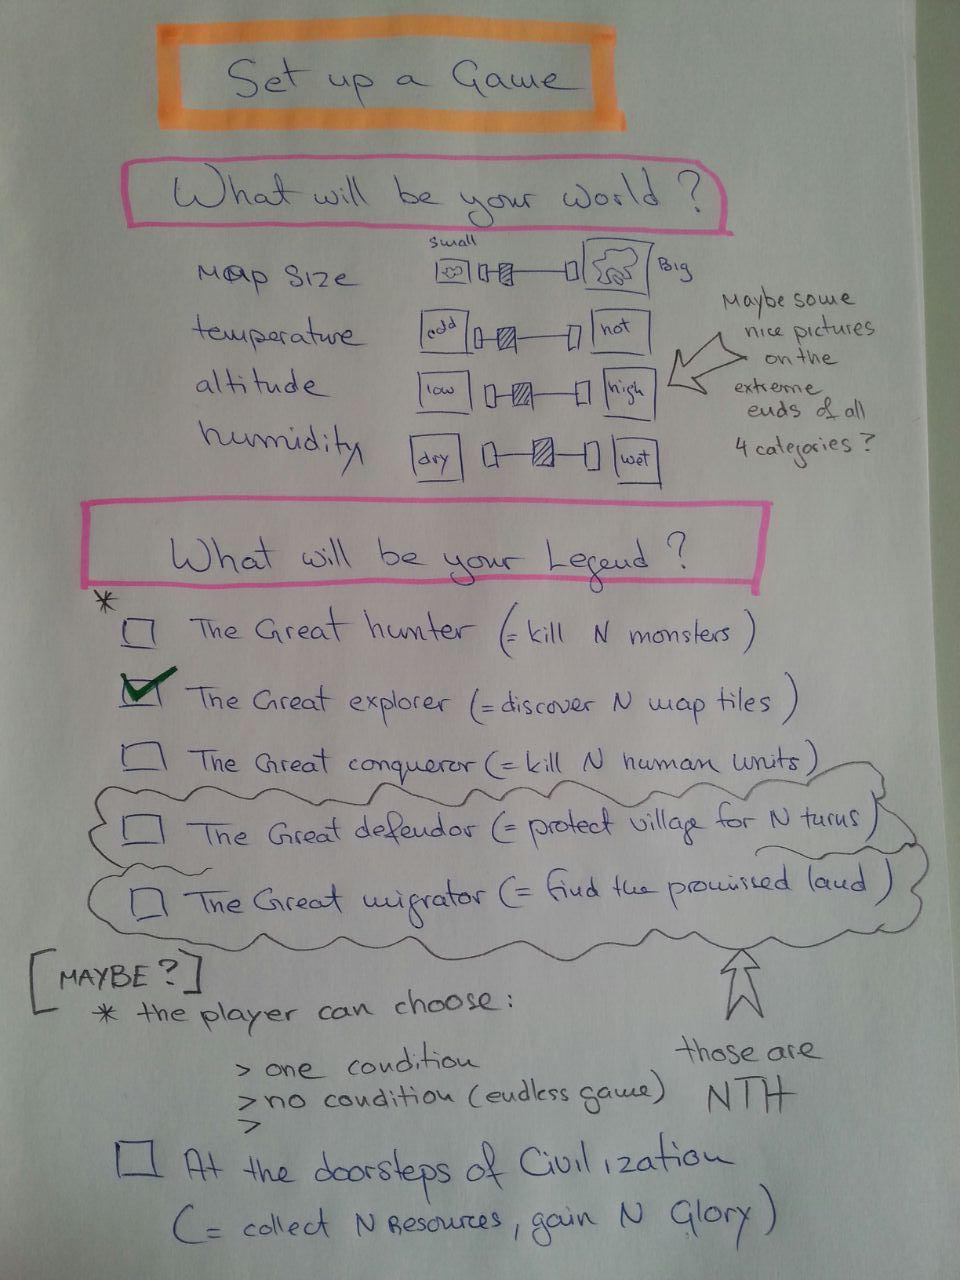 Set up a Game
What will be your world ?
small
Map Size
Big
temperature
cold
hot
altitude
low
high
humidity
dry
wet
Maybe some
nice pictures
on the
extreme
ends of all
4 categories ?
What will be your Legend ?
* The Great hunter (= kill N monsters)
The Great explorer (= discover N map tiles)
The Great conqueror (= kill N human units)
The Great defendor (= protect village for N turns)
The Great migrator (= find the promissed land)
[MAYBE ?]
* the player can choose :
> one condition
> no condition (endless game)
>
those are
NTH
At the doorsteps of Civilization
(= collect N Resources, gain N Glory)